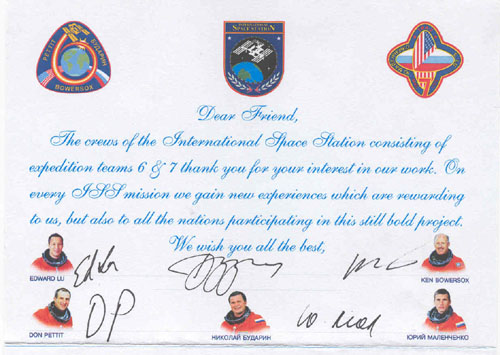 ПЕТТИТ БУДАРИН
BOWERSOX
SPACE STATION
Dear Friend,
The crews of the International Space Station consisting of
expedition teams 6 & 7 thank you for your interest in our work. On
every ISS mission we gain new experiences which are rewarding
to us, but also to all the nations participating in this still bold project.
We wish you all the best,
EDWARD LU
KEN BOWERSOX
DON PETTIT
НИКОЛАЙ БУДАРИН
ЮРИЙ МАЛЕНЧЕНКО